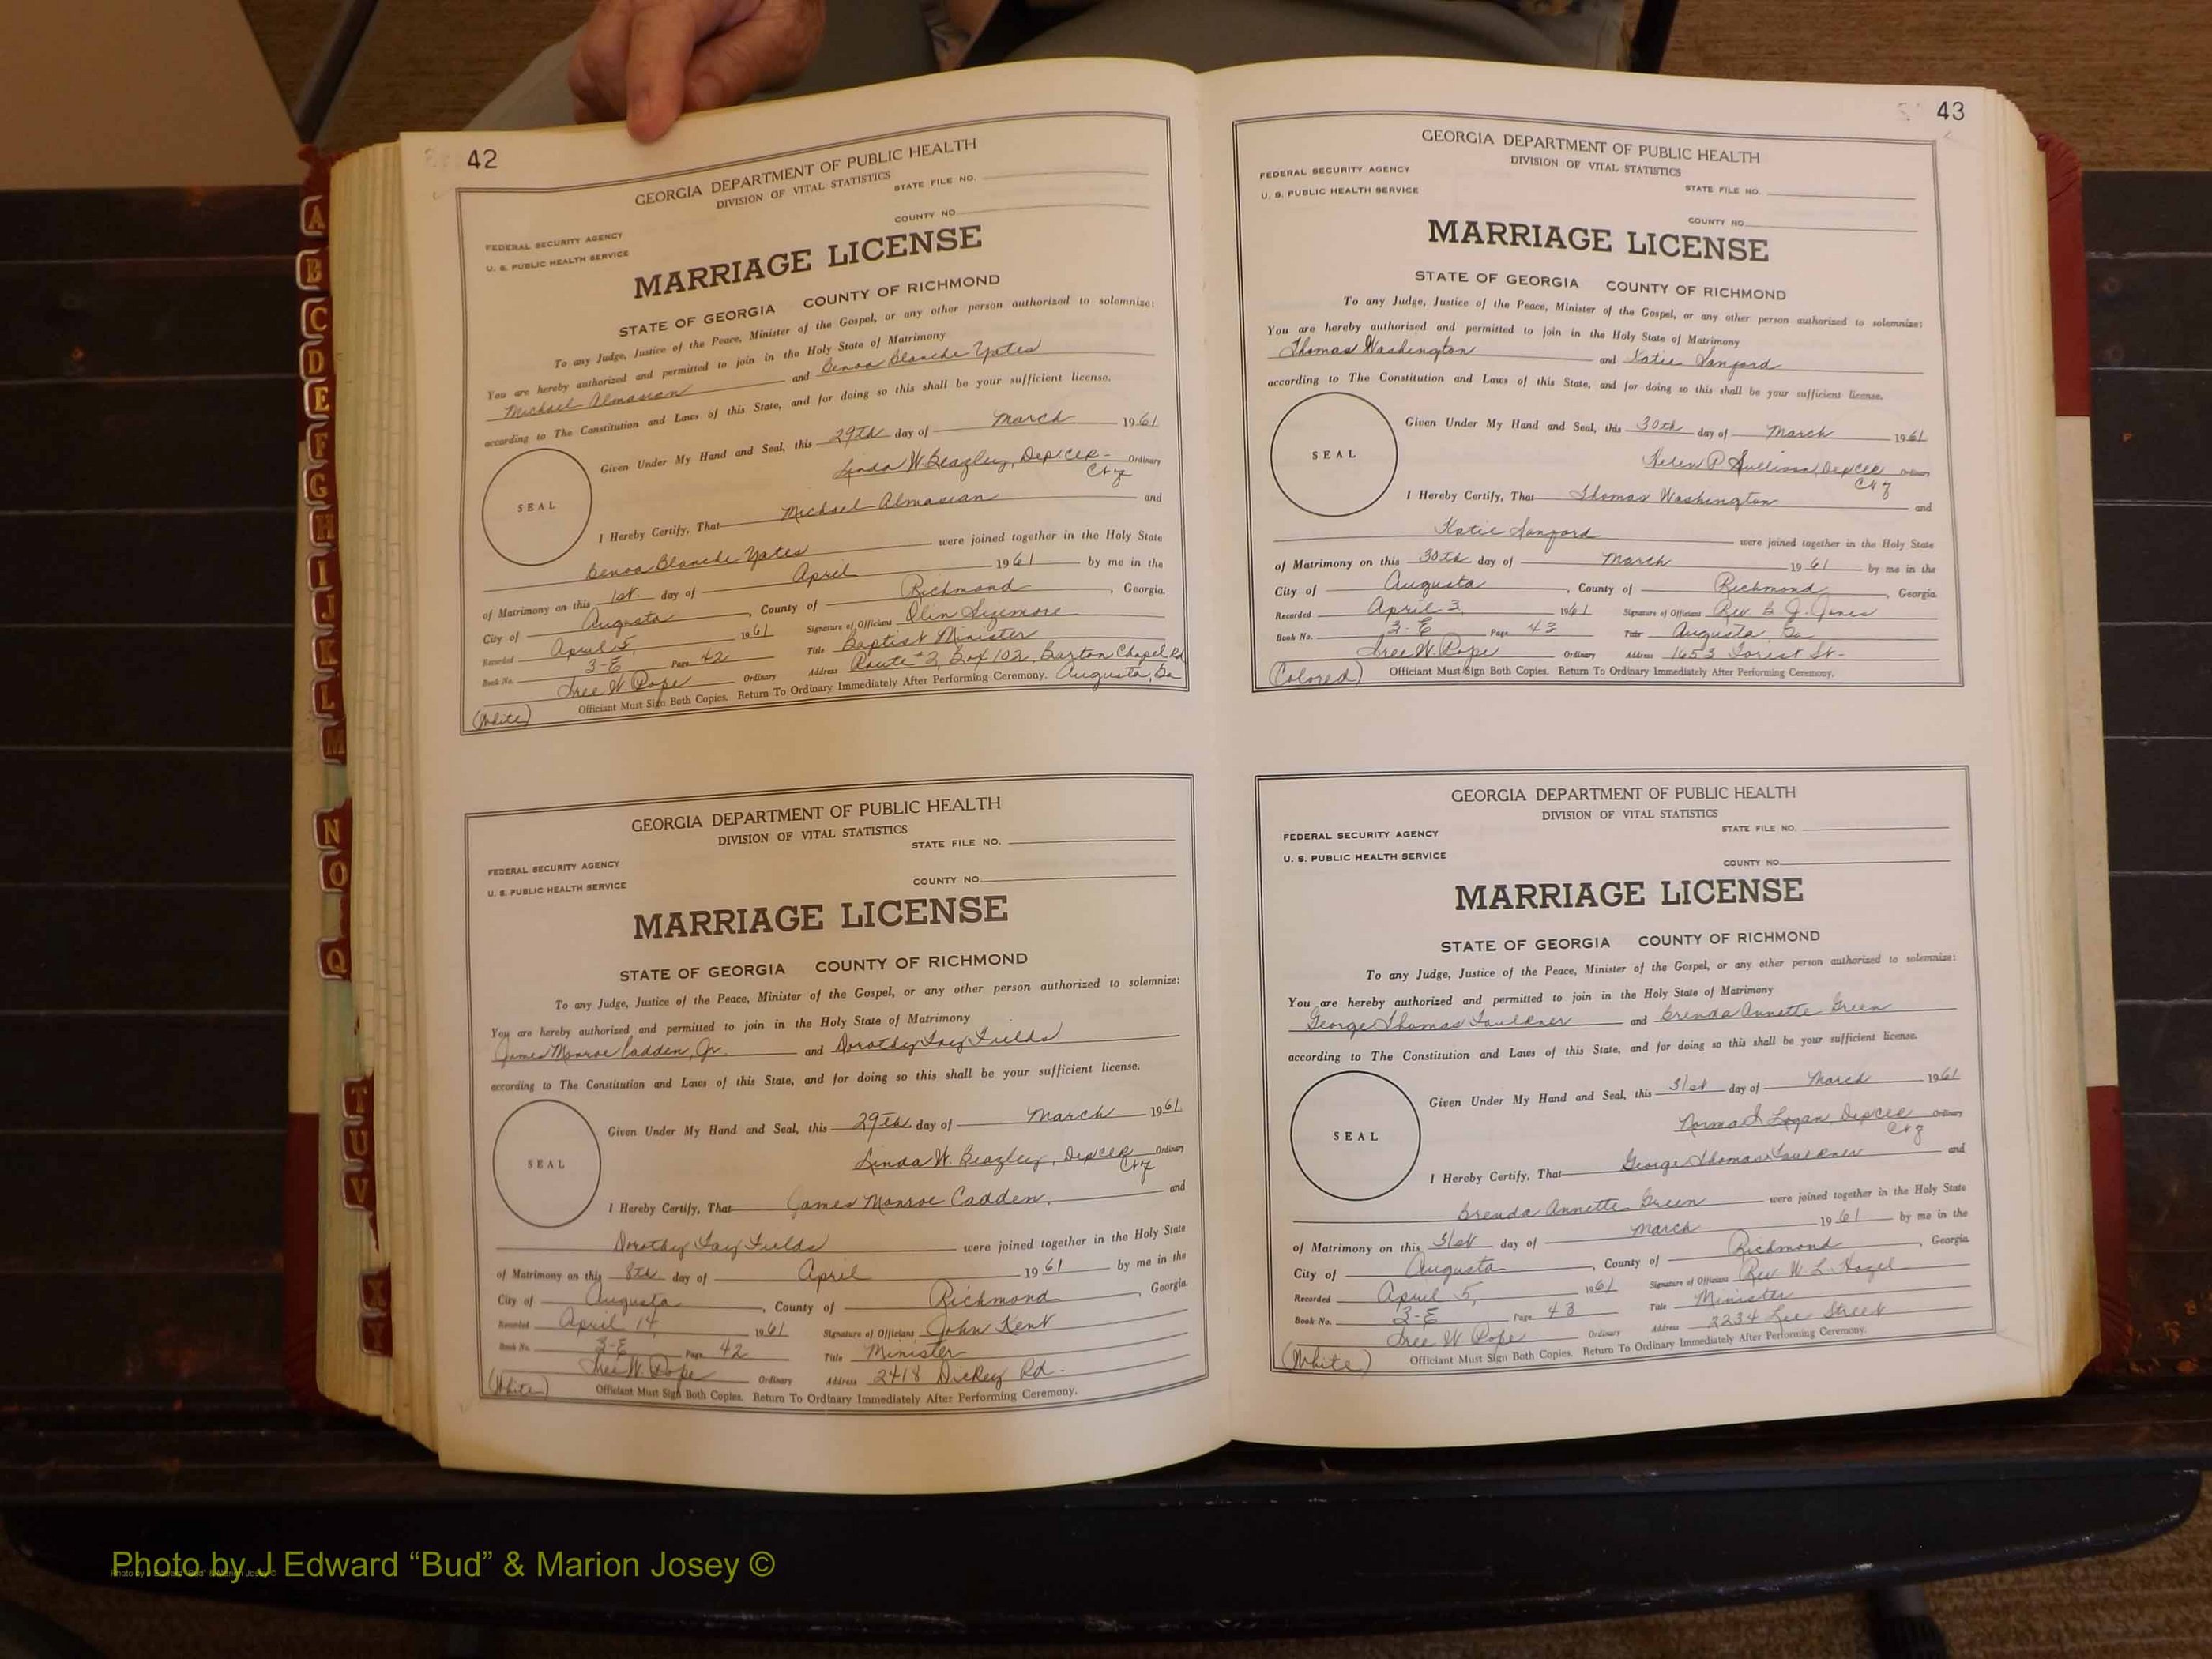 42
GEORGIA DEPARTMENT OF PUBLIC HEALTH
DIVISION OF VITAL STATISTICS
STATE FILE NO.
COUNTY NO.
FEDERAL SECURITY AGENCY
U. S. PUBLIC HEALTH SERVICE
MARRIAGE LICENSE
STATE OF GEORGIA COUNTY OF RICHMOND
To any Judge, Justice of the Peace, Minister of the Gospel, or any other person authorized to solemnize:
You are hereby authorized and permitted to join in the Holy State of Matrimony
Michael Almasian and Benoa Blanche Yates
according to The Constitution and Laws of this State, and for doing so this shall be your sufficient license.
Given Under My Hand and Seal, this 29th day of March 1961
Linda W. Beazley, Dep CCR Ordinary
SEAL
I Hereby Certify, That Michael Almasian and
Benoa Blanche Yates were joined together in the Holy State
of Matrimony on this 1st day of April 1961 by me in the
City of Augusta, County of Richmond, Georgia.
Recorded April 5, 1961 Signature of Officiant Olin Sizemore
Book No. 3-E Page 42 Title Baptist Minister
Tree W. Pope Ordinary Address Route #2, Box 102, Barton Chapel Rd
Augusta, Ga
(White) Officiant Must Sign Both Copies. Return To Ordinary Immediately After Performing Ceremony.
GEORGIA DEPARTMENT OF PUBLIC HEALTH
DIVISION OF VITAL STATISTICS
STATE FILE NO.
FEDERAL SECURITY AGENCY
U. S. PUBLIC HEALTH SERVICE
COUNTY NO.
MARRIAGE LICENSE
STATE OF GEORGIA COUNTY OF RICHMOND
To any Judge, Justice of the Peace, Minister of the Gospel, or any other person authorized to solemnize:
You are hereby authorized and permitted to join in the Holy State of Matrimony
James Monroe Cadden, Jr. and Dorothy Fay Fields
according to The Constitution and Laws of this State, and for doing so this shall be your sufficient license.
Given Under My Hand and Seal, this 29th day of March 1961
Linda W. Beazley, Dep CCR Ordinary
SEAL
I Hereby Certify, That James Monroe Cadden, and
Dorothy Fay Fields were joined together in the Holy State
of Matrimony on this 8th day of April 1961 by me in the
City of Augusta, County of Richmond Georgia
Recorded April 14, 1961 Signature of Officiant John Kent
Book No. 3-E Page 42 Title Minister
Tree W. Pope Ordinary Address 2418 Dickey Rd.
(White) Officiant Must Sign Both Copies. Return To Ordinary Immediately After Performing Ceremony.
43
GEORGIA DEPARTMENT OF PUBLIC HEALTH
DIVISION OF VITAL STATISTICS
FEDERAL SECURITY AGENCY
U. S. PUBLIC HEALTH SERVICE
STATE FILE NO.
COUNTY NO.
MARRIAGE LICENSE
STATE OF GEORGIA COUNTY OF RICHMOND
To any Judge, Justice of the Peace, Minister of the Gospel, or any other person authorized to solemnize:
You are hereby authorized and permitted to join in the Holy State of Matrimony
Thomas Washington and Katie Sanford
according to The Constitution and Laws of this State, and for doing so this shall be your sufficient license.
Given Under My Hand and Seal, this 30th day of March 1961
Helen P. Sullivan, Dep CCR Ordinary
SEAL
I Hereby Certify, That Thomas Washington and
Katie Sanford were joined together in the Holy State
of Matrimony on this 30th day of March 1961 by me in the
City of Augusta, County of Richmond, Georgia
Recorded April 3, 1961 Signature of Officiant Rev. E. J. Jones
Book No. 3-E Page 43 Title Augusta, Ga
Tree W. Pope Ordinary Address 1653 Forest St.
(Colored) Officiant Must Sign Both Copies. Return To Ordinary Immediately After Performing Ceremony.
GEORGIA DEPARTMENT OF PUBLIC HEALTH
DIVISION OF VITAL STATISTICS
FEDERAL SECURITY AGENCY
STATE FILE NO.
U. S. PUBLIC HEALTH SERVICE
COUNTY NO.
MARRIAGE LICENSE
STATE OF GEORGIA COUNTY OF RICHMOND
To any Judge, Justice of the Peace, Minister of the Gospel, or any other person authorized to solemnize:
You are hereby authorized and permitted to join in the Holy State of Matrimony
George Thomas Faulkner and Brenda Annette Green
according to The Constitution and Laws of this State, and for doing so this shall be your sufficient license.
Given Under My Hand and Seal, this 31st day of March 1961
Norma S. Logan, Dep CCR Ordinary
SEAL
I Hereby Certify, That George Thomas Faulkner and
Brenda Annette Green were joined together in the Holy State
of Matrimony on this 31st day of March 1961 by me in the
City of Augusta, County of Richmond, Georgia
Recorded April 5, 1961 Signature of Officiant Rev. W. L. Hazel
Book No. 3-E Page 43 Title Minister
Tree W. Pope Ordinary Address 2234 Lee Street
(White) Officiant Must Sign Both Copies. Return To Ordinary Immediately After Performing Ceremony.
A
B
C
D
E
F
G
H
I
J
K
L
M
N
O
Q
T
U
V
X
Y
Photo by J Edward “Bud” & Marion Josey ©
Photo by J Edward “Bud” & Marion Josey ©